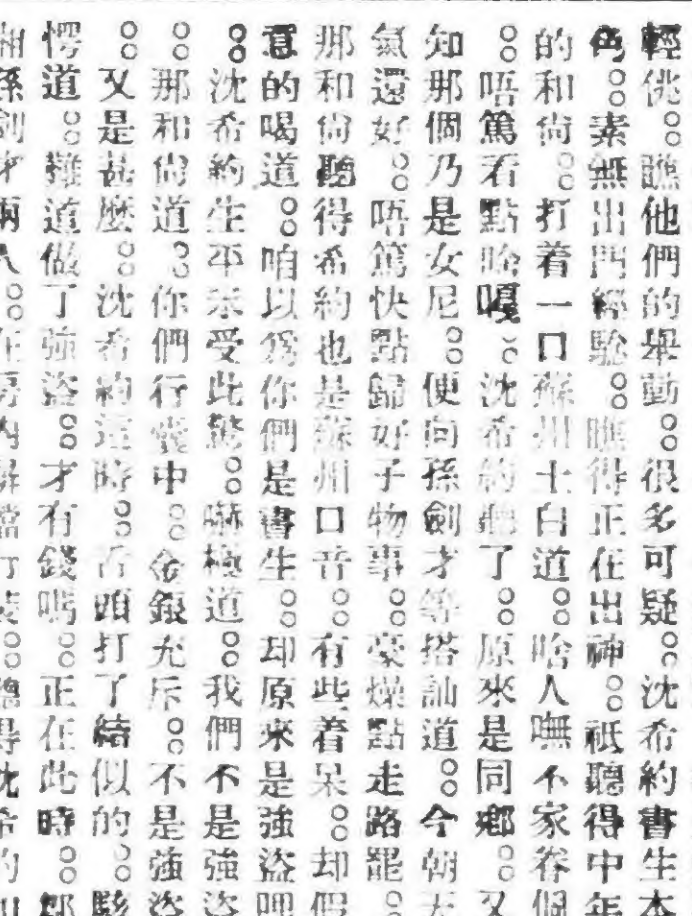 輕佻。。瞧他們的舉動。。很多可疑。。沈希約書生本
色。。素無出門經驗。。瞧得正在出神。。祇聽得中年
的和尙。。打着一口蘇州土白道。。啥人嘸不家眷個
。。唔篤看點啥嘎。。沈希約聽了。。原來是同鄕。。又
知那個乃是女尼。。便向孫劍才等搭訕道。。今朝天
氣還好。。唔篤快點歸好子物事。。豪燥點走路罷。。
那和尙聽得希約也是蘇州口音。。有些着呆。。却假
意的喝道。。咱以爲你們是書生。。却原來是強盜哩
。。沈希約生平未受此驚。。嚇極道。。我們不是強盜
。。那和尙道。。你們行囊中。。金銀充斥。。不是強盜
。。又是甚麼。。沈希約這時。。舌頭打了結似的。。駭
愕道。。難道做了強盜。。才有錢嗎。。正在此時。。郎